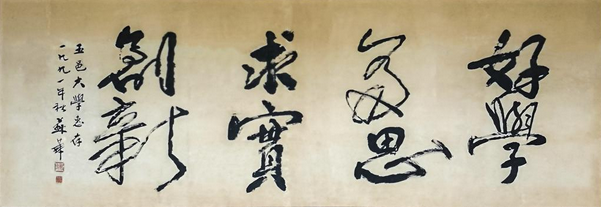 好學
多思
求實
創新
五邑大學惠存
一九九一年秋蘇華